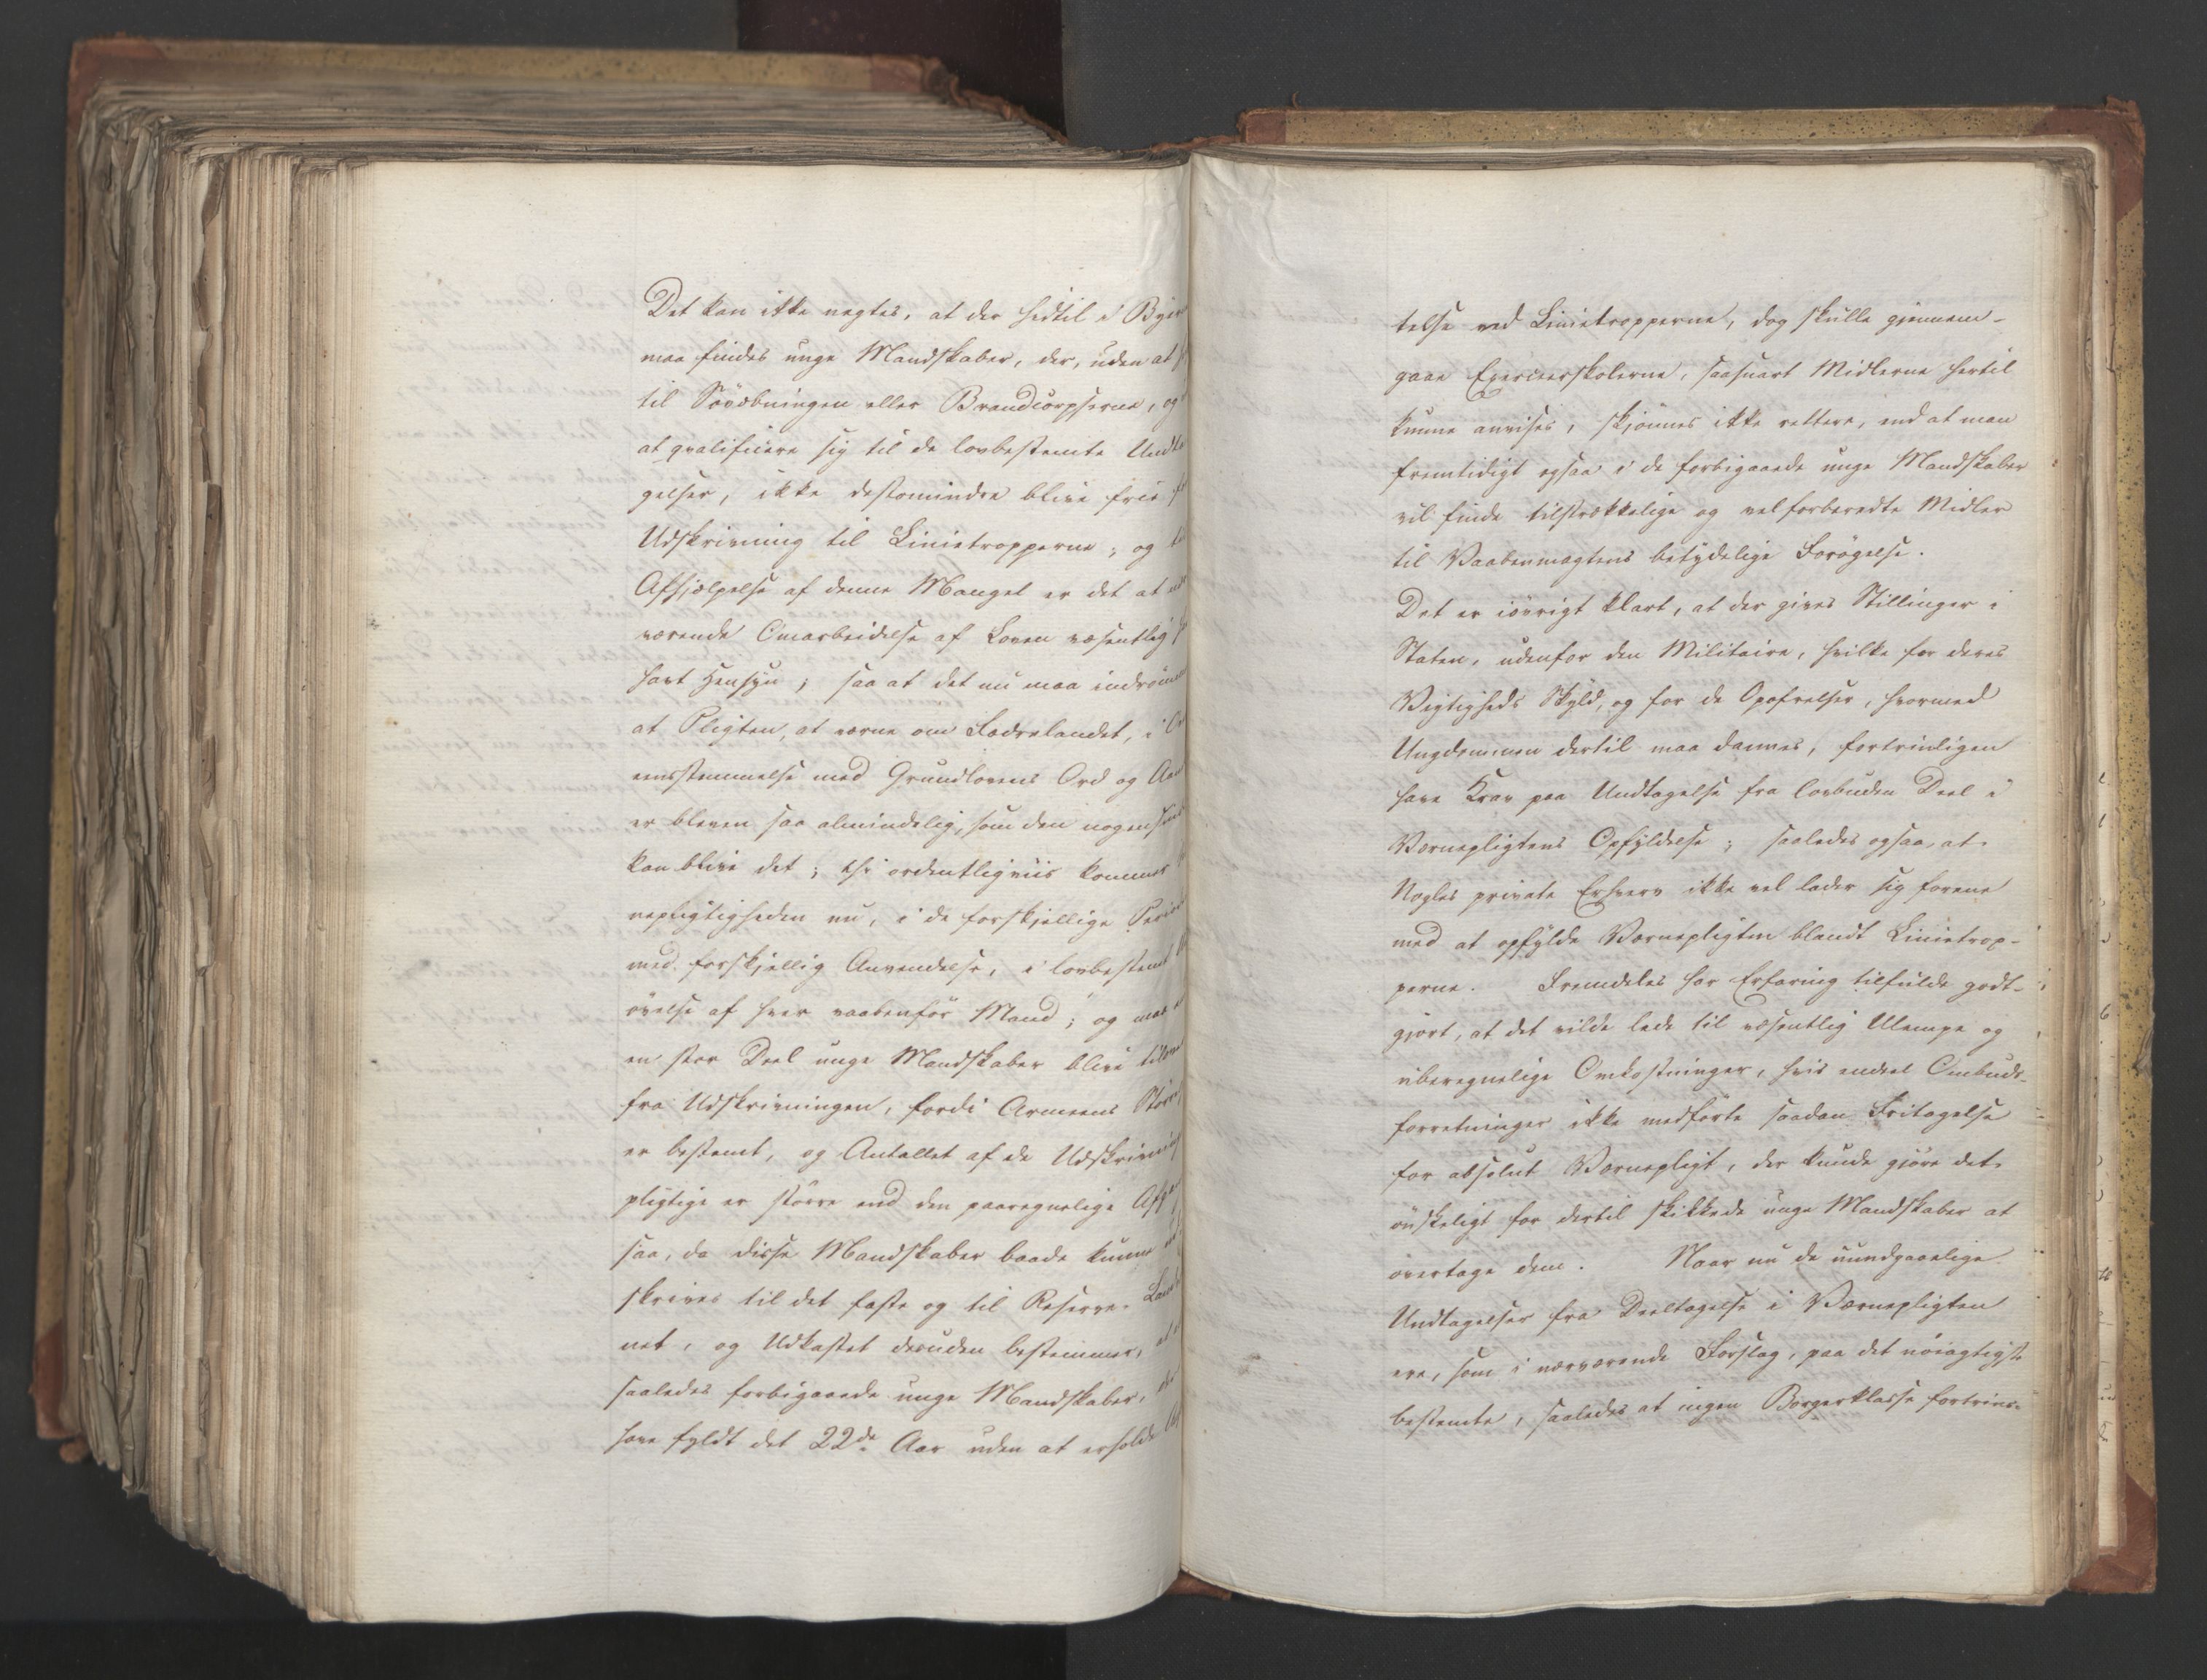 Det kan ikke negtes, at der hidtil i Byer
maa findes unge Mandskaber, der, uden at
til Søvæbningen eller Brandcorpserne, og
at qvalificere sig til de lovbestemte Undta
gelser, ikke destomindre blive frie
Udskrivning til Linietropperne; og
Afhjælpelse af denne Mangel er det at
værende Omarbeidelse af Loven væsentlig
havt Hensyn; saa at det nu maa indrømm
at Pligten, at værne om Fædrelandet, i
eensstemmelse med Grundlovens Ord og Aan
er bleven saa almindelig, som den nogensinde
kan blive det; thi ordentligviis kommer
nepligtigheden nu, i de forskjellige Perio
med forskjellig Anvendelse, i lovbestemt
øvelse af hver vaabenfør Mand; og maa
en stor Deel unge Mandskaber blive tilovers
fra Udskrivningen, fordi Armeens Størr
er bestemt, og Antallet af de Udskrivnings
pligtige er større end den paaregnelige Afgan
saa, da disse Mandskaber baade kunne ud
skrives til det faste og til Reserve-Landvær
net, og Udkastet desuden bestemmer, at
saaledes forbigaaede unge Mandskaber,
have fyldt det 22de Aar uden at erholde
telse ved Linietropperne, dog skulle gjennem-
gaae Exerceerskolerne, saasnart Midlerne hertil
kunne anvises, skjønnes ikke rettere, end at man
fremtidigt ogsaa i de forbigaaede unge Mandskaber
vil finde tilstrækkelige og vel forberedte Midler
til Vaabenmagtens betydelige Forøgelse.
Det er iøvrigt klart, at der gives Stillinger i
Staten, udenfor den Militaire, hvilke for deres
Vigtigheds Skyld, og for de Opofrelser, hvormed
Ungdommen dertil maa dannes, fortrinligen
have Krav paa Undtagelse fra lovbuden Deel i
Værnepligtens Opfyldelse; saaledes ogsaa, at
Nogles private Erhverv ikke vel lader sig forene
med at opfylde Værnepligten blandt Linietrop-
perne. Fremdeles har Erfaring tilfulde godt-
gjort, at det vilde lede til væsentlig Ulempe og
uberegnelige Omkostninger, hvis endeel Ombuds-
forretninger ikke medførte saadan Fritagelse
for absolut Værnepligt, der kunde gjøre det
ønskeligt for dertil skikkede unge Mandskaber at
overtage dem. Naar nu de uundgaaelige
Undtagelser fra Deeltagelse i Værnepligten
ere, som i nærværende Forslag, paa det nøiagtigste
bestemte, saaledes at ingen Borgerklasse fortrins-